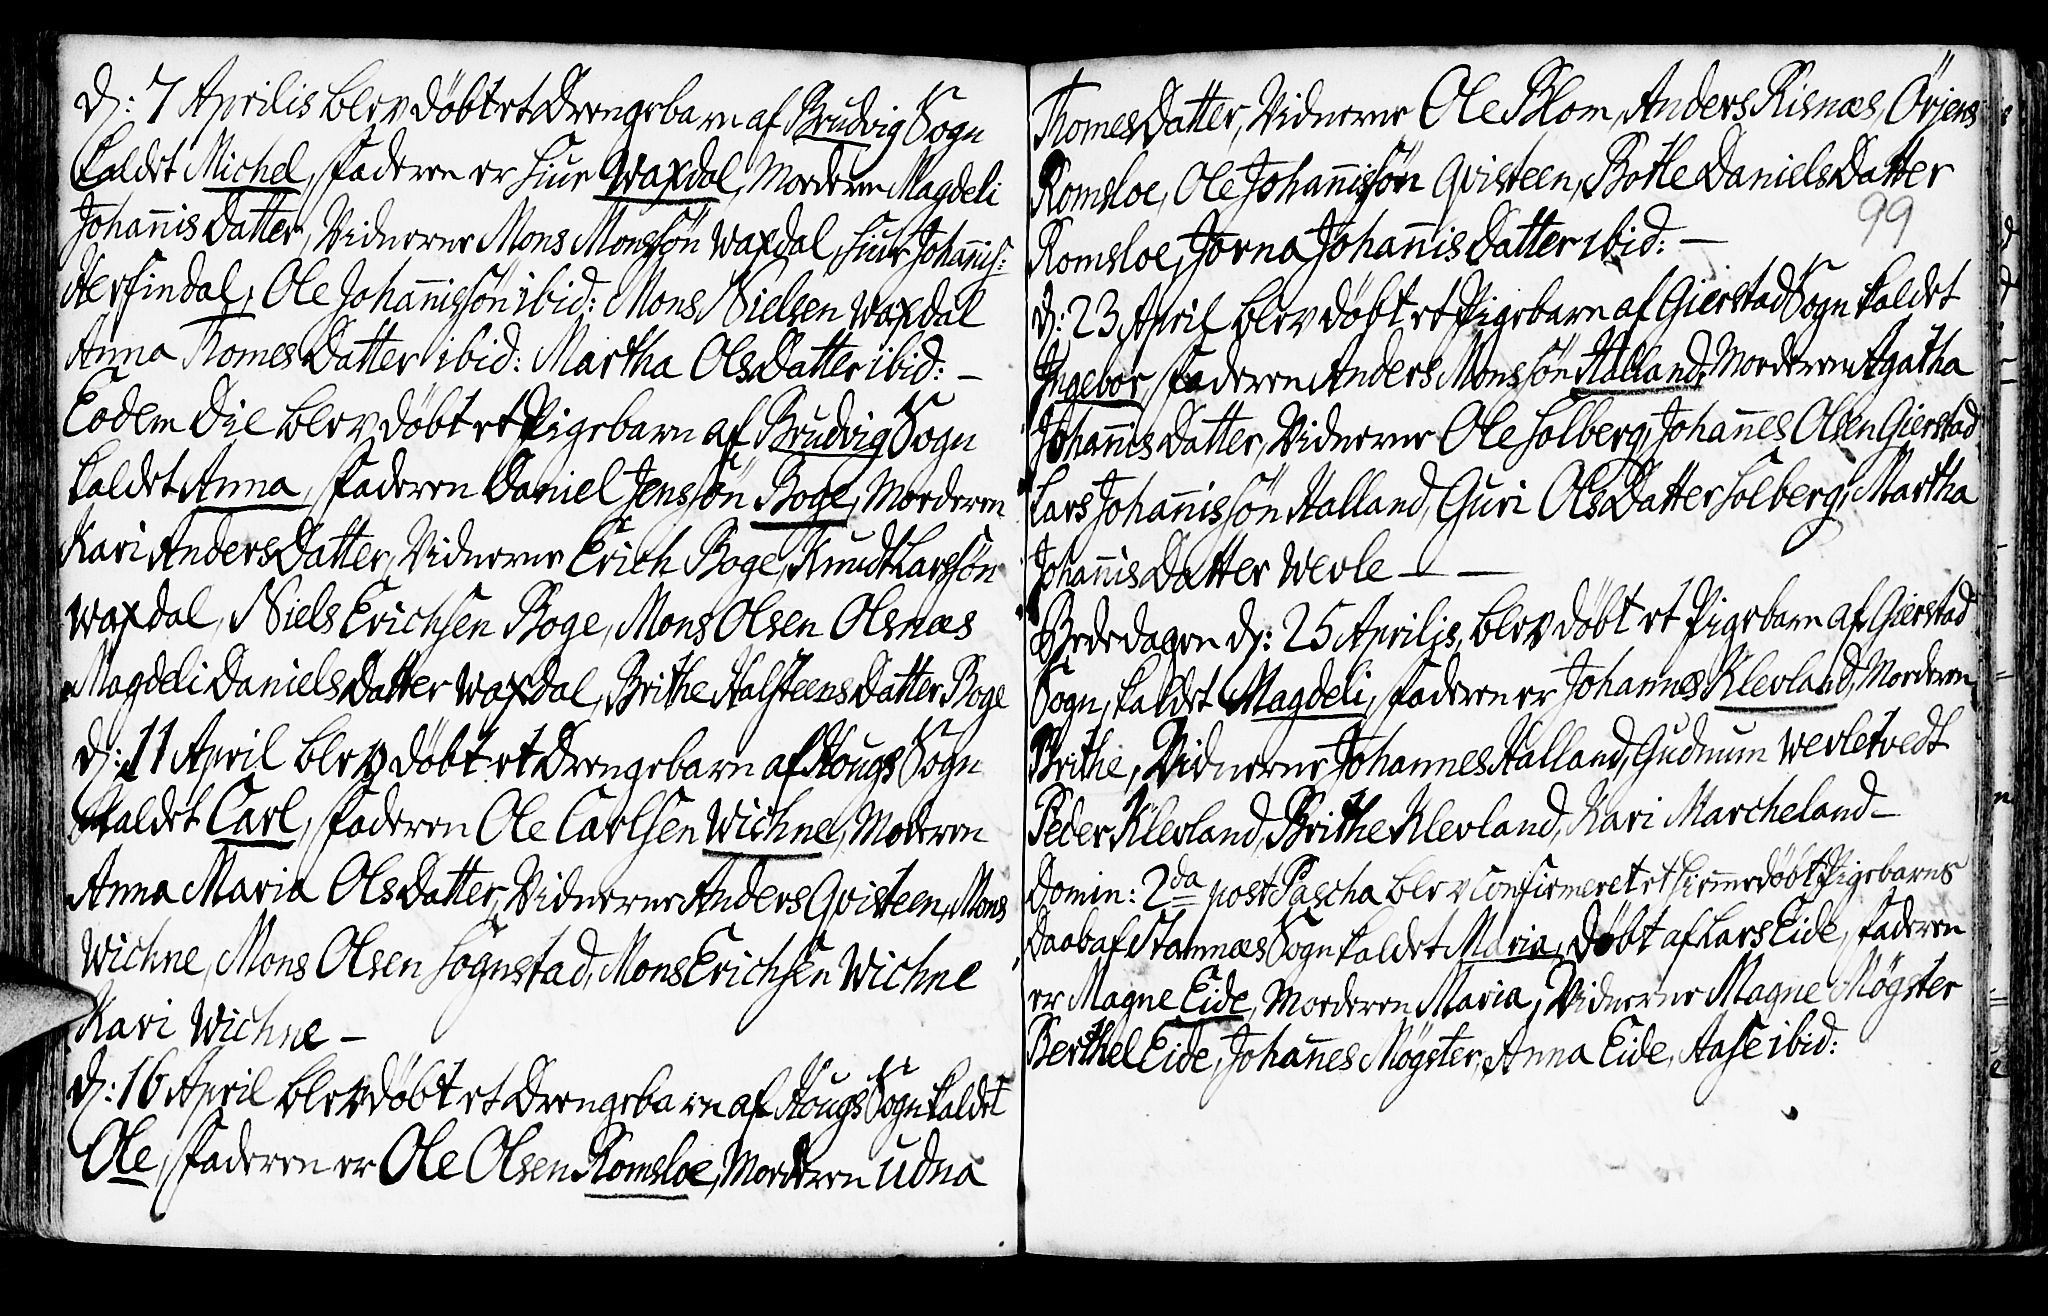 D: 7 Aprilis blev döbt et Drengebarn af Brudvig Sogn
kaldet Michel, Faderen er Siur Waxdal, Moderen Magdeli
Johan̄is Datter, Vidnerne Mons Monssön Waxdal, Siur Johan̄is:
Herfindal, Ole Johan̄issön ibid: Mons Nielsen Waxdal
Anna Tomes Datter ibid: Martha Ols Datter ibid: —
Eodem Die blev döbt et Pigebarn af Brudvig Sogn
kaldet Anna, Faderen Daniel Jenssön Boge, Moderen
Kari Anders Datter, Vidnerne Erich Boge, Knudt Larssön
Waxdal, Niels Erichsen Boge, Mons Olsen Olsnæs
Magdeli Daniels Datter Waxdal, Brithe Halsteens Datter Boge
D: 11 April blev döbt et Drengebarn af Hougs Sogn
kaldet Carl, Faderen Ole Carlsen Wichne, Moderen
Anna Maria Ols Datter, Vidnerne Anders Qvisteen, Mons
Wichne, Mons Olsen Sognstad, Mons Erichsen Wichne
Kari Wichne —
D: 16 April blev döbt et Drengebarn af Hougs Sogn kaldet
Ole, Faderen er Ole Olsen Romsloe, Moderen Udna
Thomes Datter, Vidnerne Ole Blom, Anders Risnæs, Örjens
Romsloe, Ole Johan̄issön Qvisteen, Bothe Daniels Datter
99
Romsloe, Jorna Johan̄is Datter ibid: —
D: 23 April blev döbt et Pigebarn af Gierstad Sogn kaldet
Ingebor, Faderen Anders Monssön Halland, Moderen Agatha
Johan̄is Datter, Vidnerne Ole Solberg, Johan̄es Olsen Gierstad
Lars Johan̄issön Halland, Guri Ols Datter Solberg, Martha
Johan̄is Datter Wevle — —
Bededagen d: 25 Aprilis, blev döbt et Pigebarn af Gierstad
Sogn, kaldet Magdeli, Faderen er Johannes Klevland, Moderen
Brithe, Vidnerne Johannes Halland, Gudmum Wevletvedt
Peder Klevland, Brithe Klevland, Kari Marcheland —
Domin: 2da post Pascha blev confirmeret et hiemedöbt Pigebarns
Daab af Stamnæs Sogn kaldet Maria, döbt af Lars Eide, Faderen
er Magne Eide, Moderen Maria, Vidnerne Magne Mögster
Berthel Eide, Johan̄es Mögster, Anna Eide, Aase ibid: